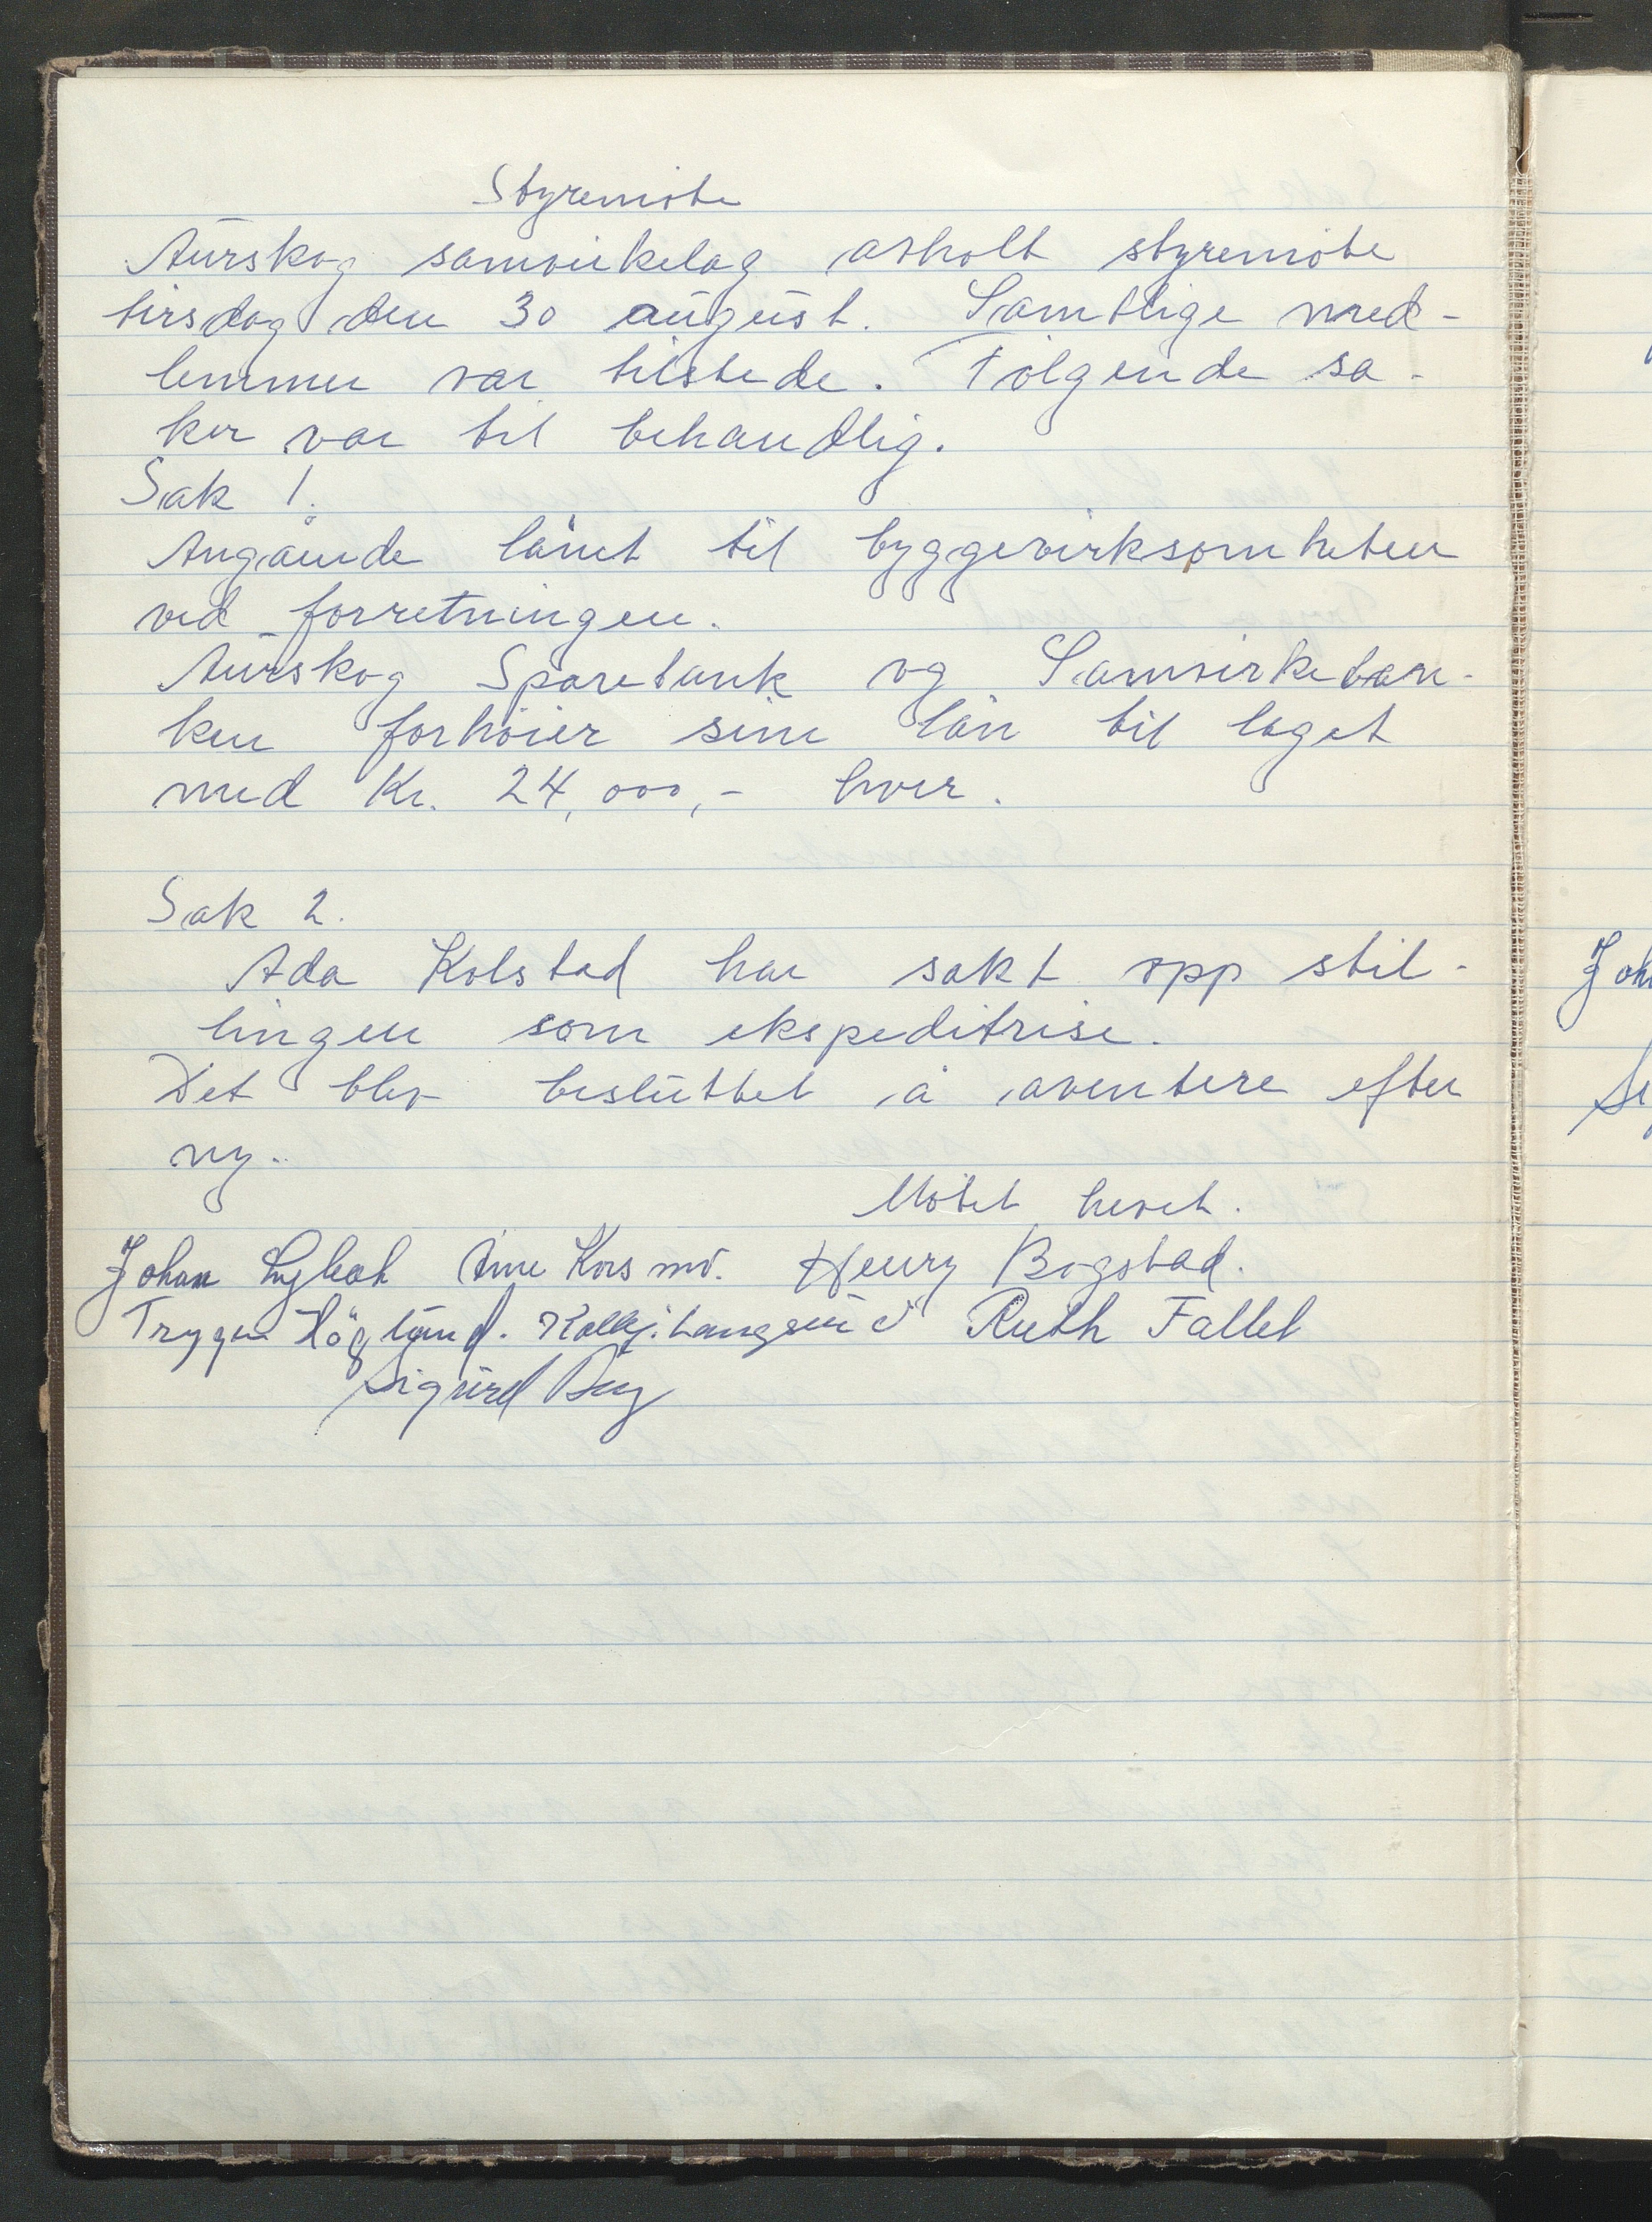 Styremöte
Aurskog samvirkelag avholt styremöte
tirsdag den 30 august. Samtlige med-
lemmer var tilstede. Fölgende sa-
ker var til behandlig.
Sak 1.
Angående lånet til byggevirksomheten
ved forretningen.
Aurskog Sparebank og Samvirkeban-
ken forhöier sine lån til laget
med Kr. 24,000,- hver.
Sak 2.
Ada Kolstad har sakt opp stil-
lingen som ekspeditrise.
Det blev besluttet å aventere efter
ny.
Mötet hevet.
Johan Arne Korsmo. Henry Bogstad.
Trygve Höglund. Kolbj. Langerud Ruth Fallet
Sigurd
Joh